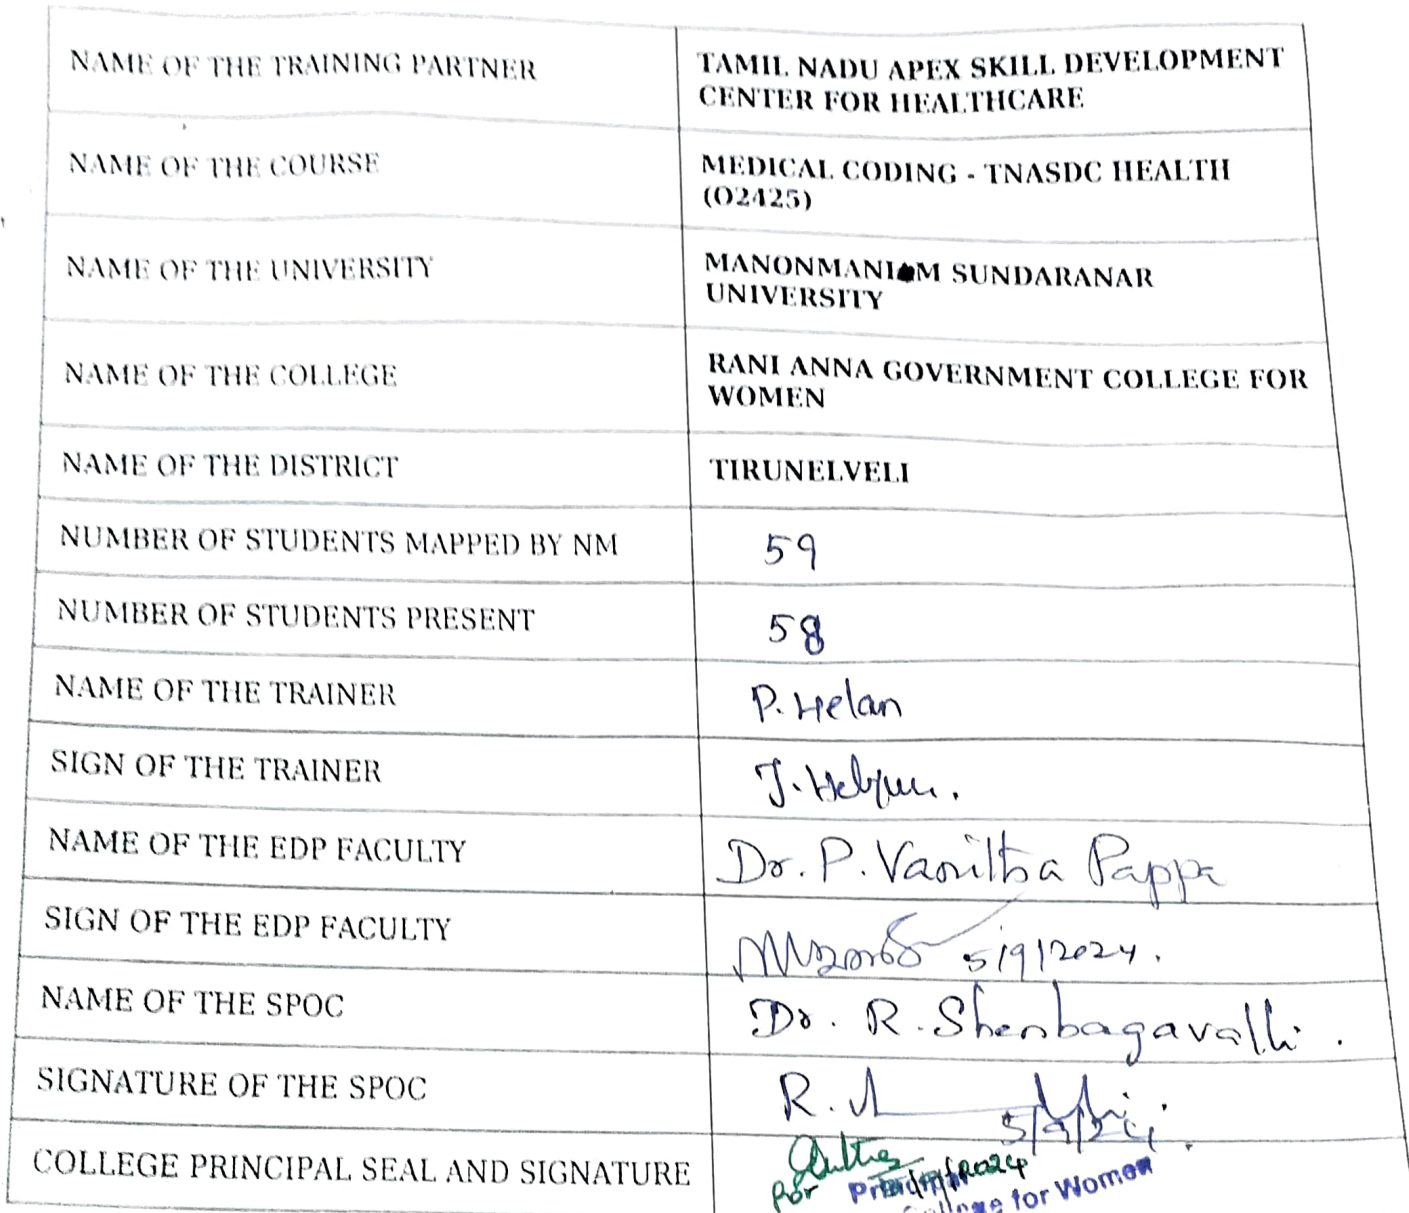 NAME OF THE TRAINING PARTNER
TAMIL NADU APEX SKILL DEVELOPMENT
CENTER FOR HEALTHCARE
NAME OF THE COURSE
MEDICAL CODING - TNASDC HEALTH
(O2425)
NAME OF THE UNIVERSITY
MANONMANIAM SUNDARANAR
UNIVERSITY
NAME OF THE COLLEGE
RANI ANNA GOVERNMENT COLLEGE FOR
WOMEN
NAME OF THE DISTRICT
TIRUNELVELI
NUMBER OF STUDENTS MAPPED BY NM
59
NUMBER OF STUDENTS PRESENT
58
NAME OF THE TRAINER
P. Helan
SIGN OF THE TRAINER
NAME OF THE EDP FACULTY
Dr. P. Vanitha Pappa
SIGN OF THE EDP FACULTY
5/9/2024.
NAME OF THE SPOC
Dr. R. Shenbagavalli.
SIGNATURE OF THE SPOC
R.
5/9/24.
COLLEGE PRINCIPAL SEAL AND SIGNATURE
for Principal
College for Women